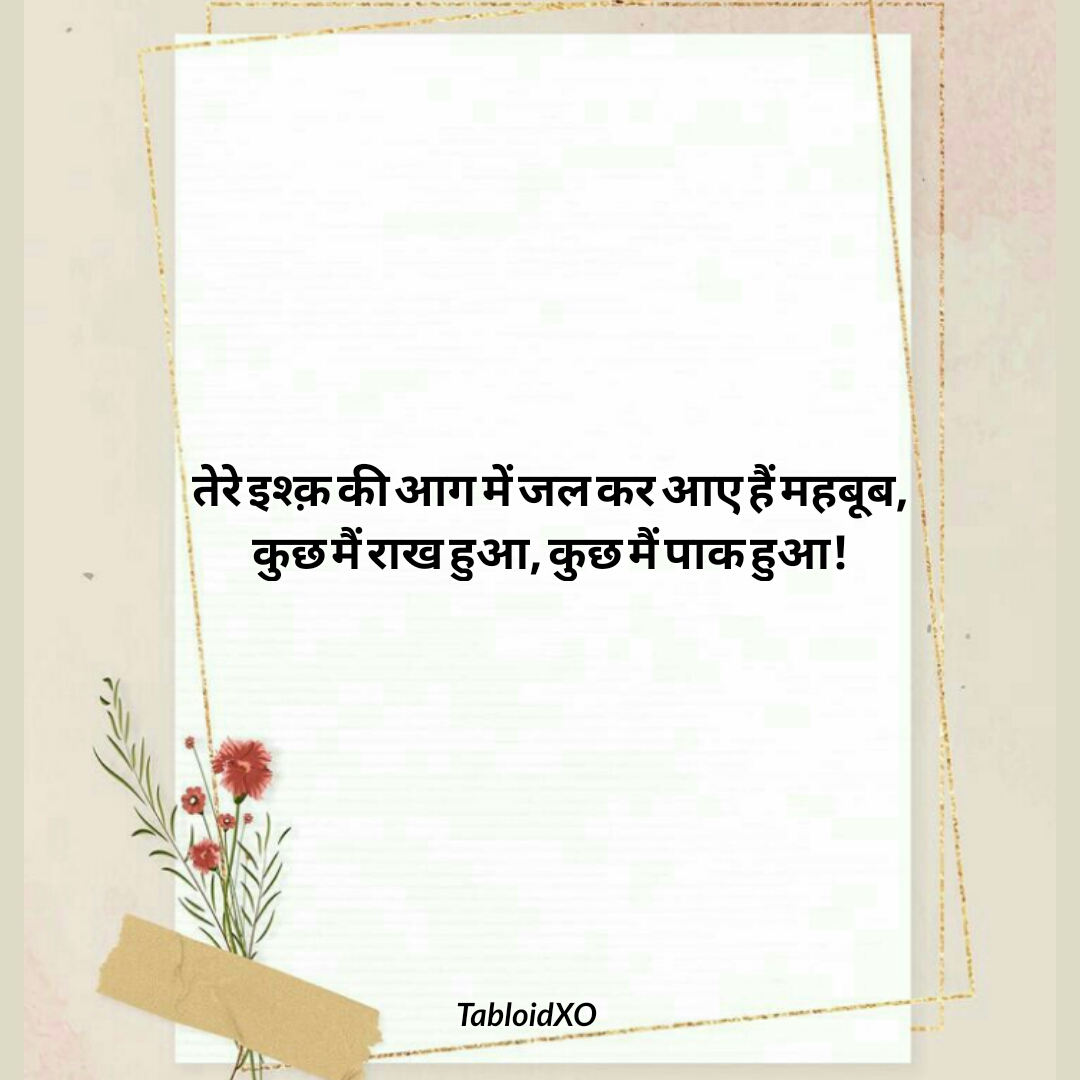 तेरे इश्क़ की आग में जल कर आए हैं महबूब,
कुछ मैं राख हुआ, कुछ मैं पाक हुआ!
TabloidXO